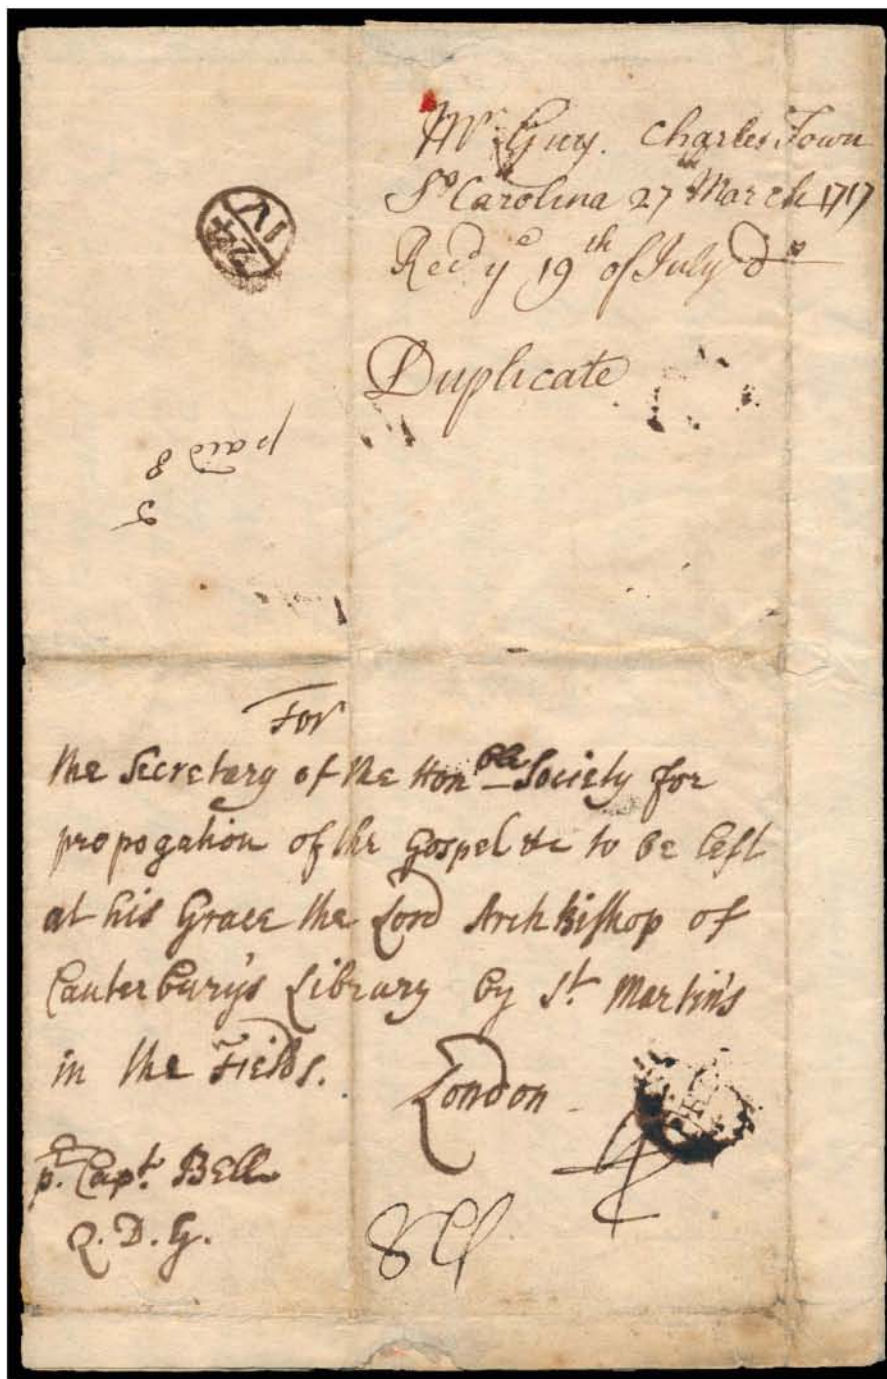 Mr Guy. Charles Town
So Carolina 27th March 1717
Recd ye 19th of July Do
Duplicate
24
IV
paid 8
5
For
the Secretary of the Honble Society for
propogation of the Gospel &c to be left
at his Grace the Lord Arch Bishop of
Canterburys Library by St Martin's
in the Fields.
London
p. Capt. Bell
Q. D. G.